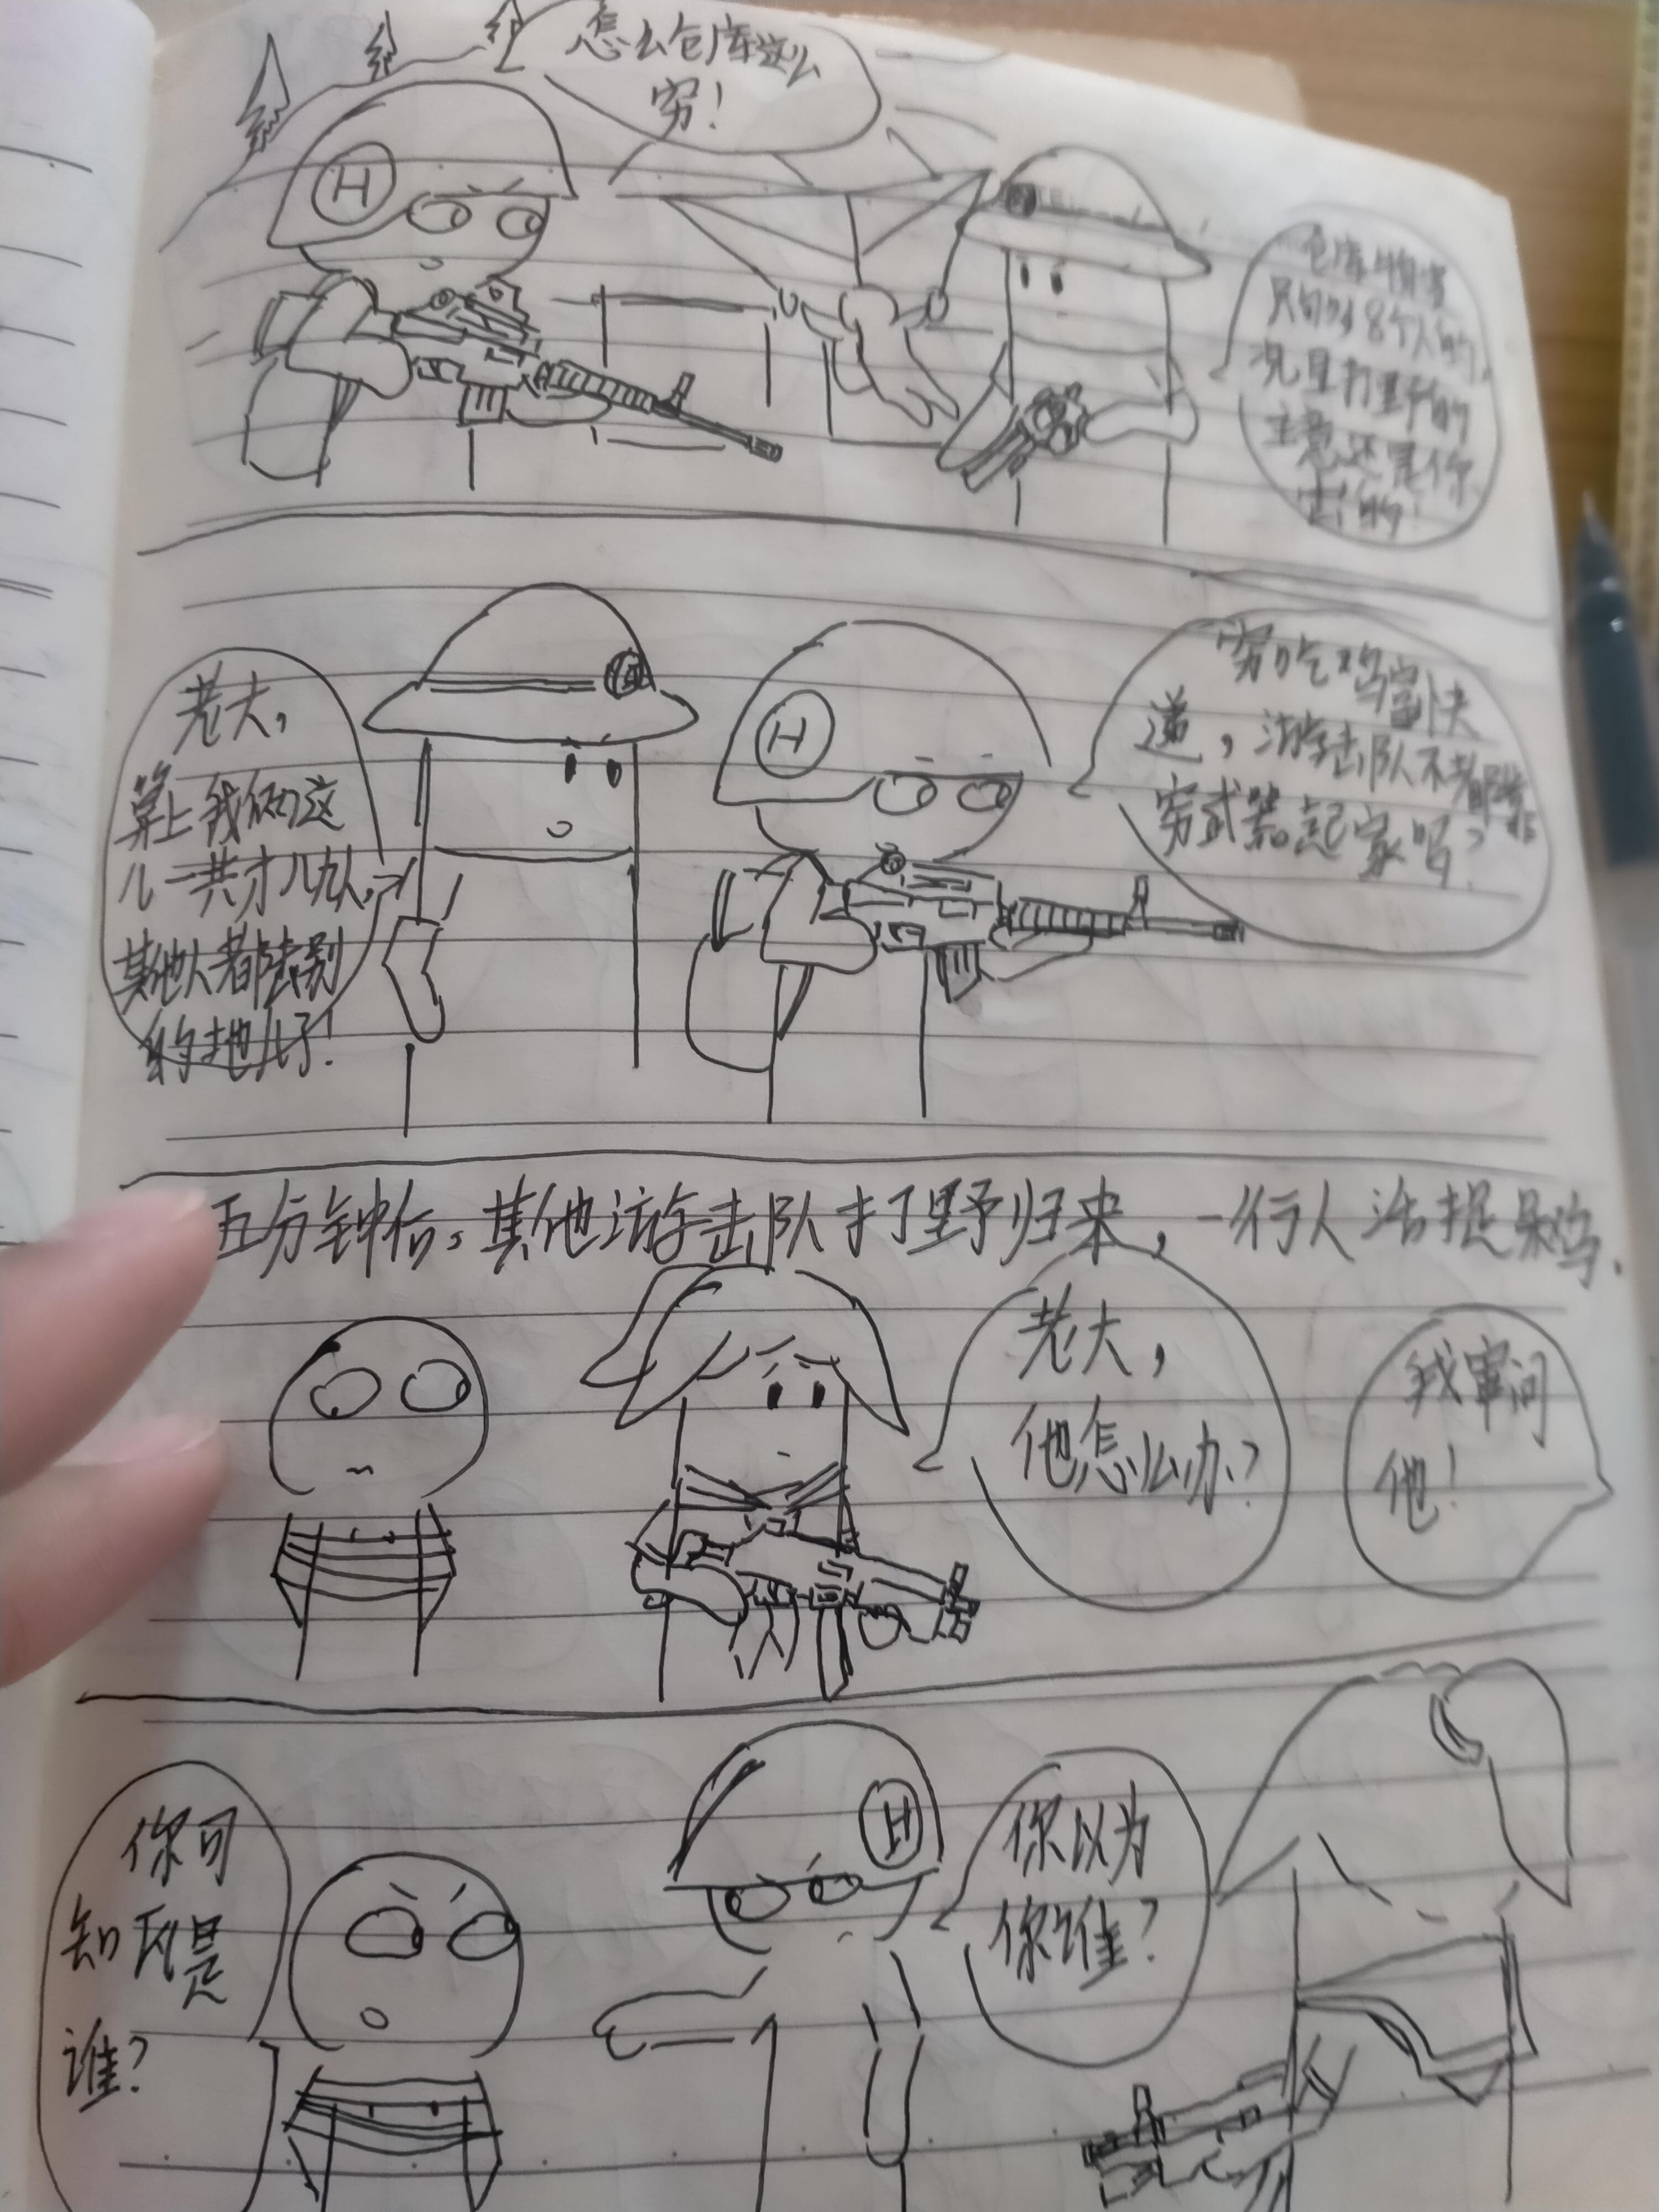 怎么仓库这么
穷!
H
仓库物资
只够8个人的,
况且打野的
主意还是你
出的!
老大,
算上我们这
儿一共才八九人,
其他人都去别
的地儿了!
H
穷吃鸡富快
递,游击队不都靠
穷武器起家吗?
五分钟后。其他游击队打野归来,一行人活捉呆鸡.
老大,
他怎么办?
我审问
他!
你可
知我是
谁?
H
你以为
你谁?